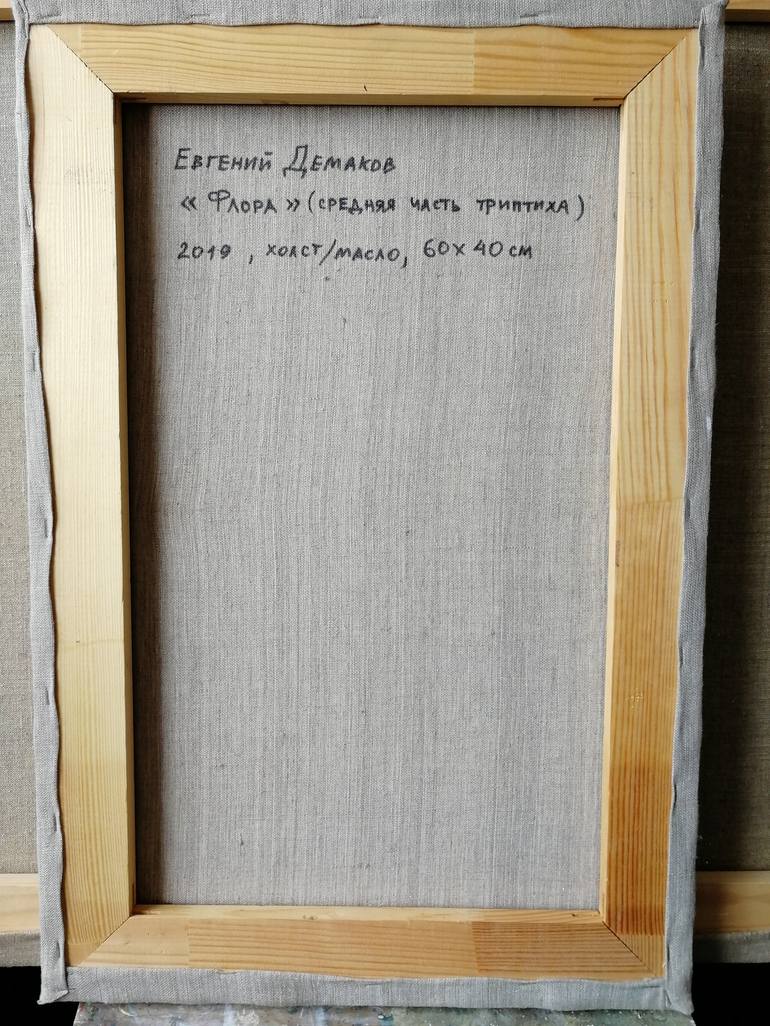 Евгений Демаков
« Флора » (средняя часть триптиха)
2019, холст/масло, 60х40 см